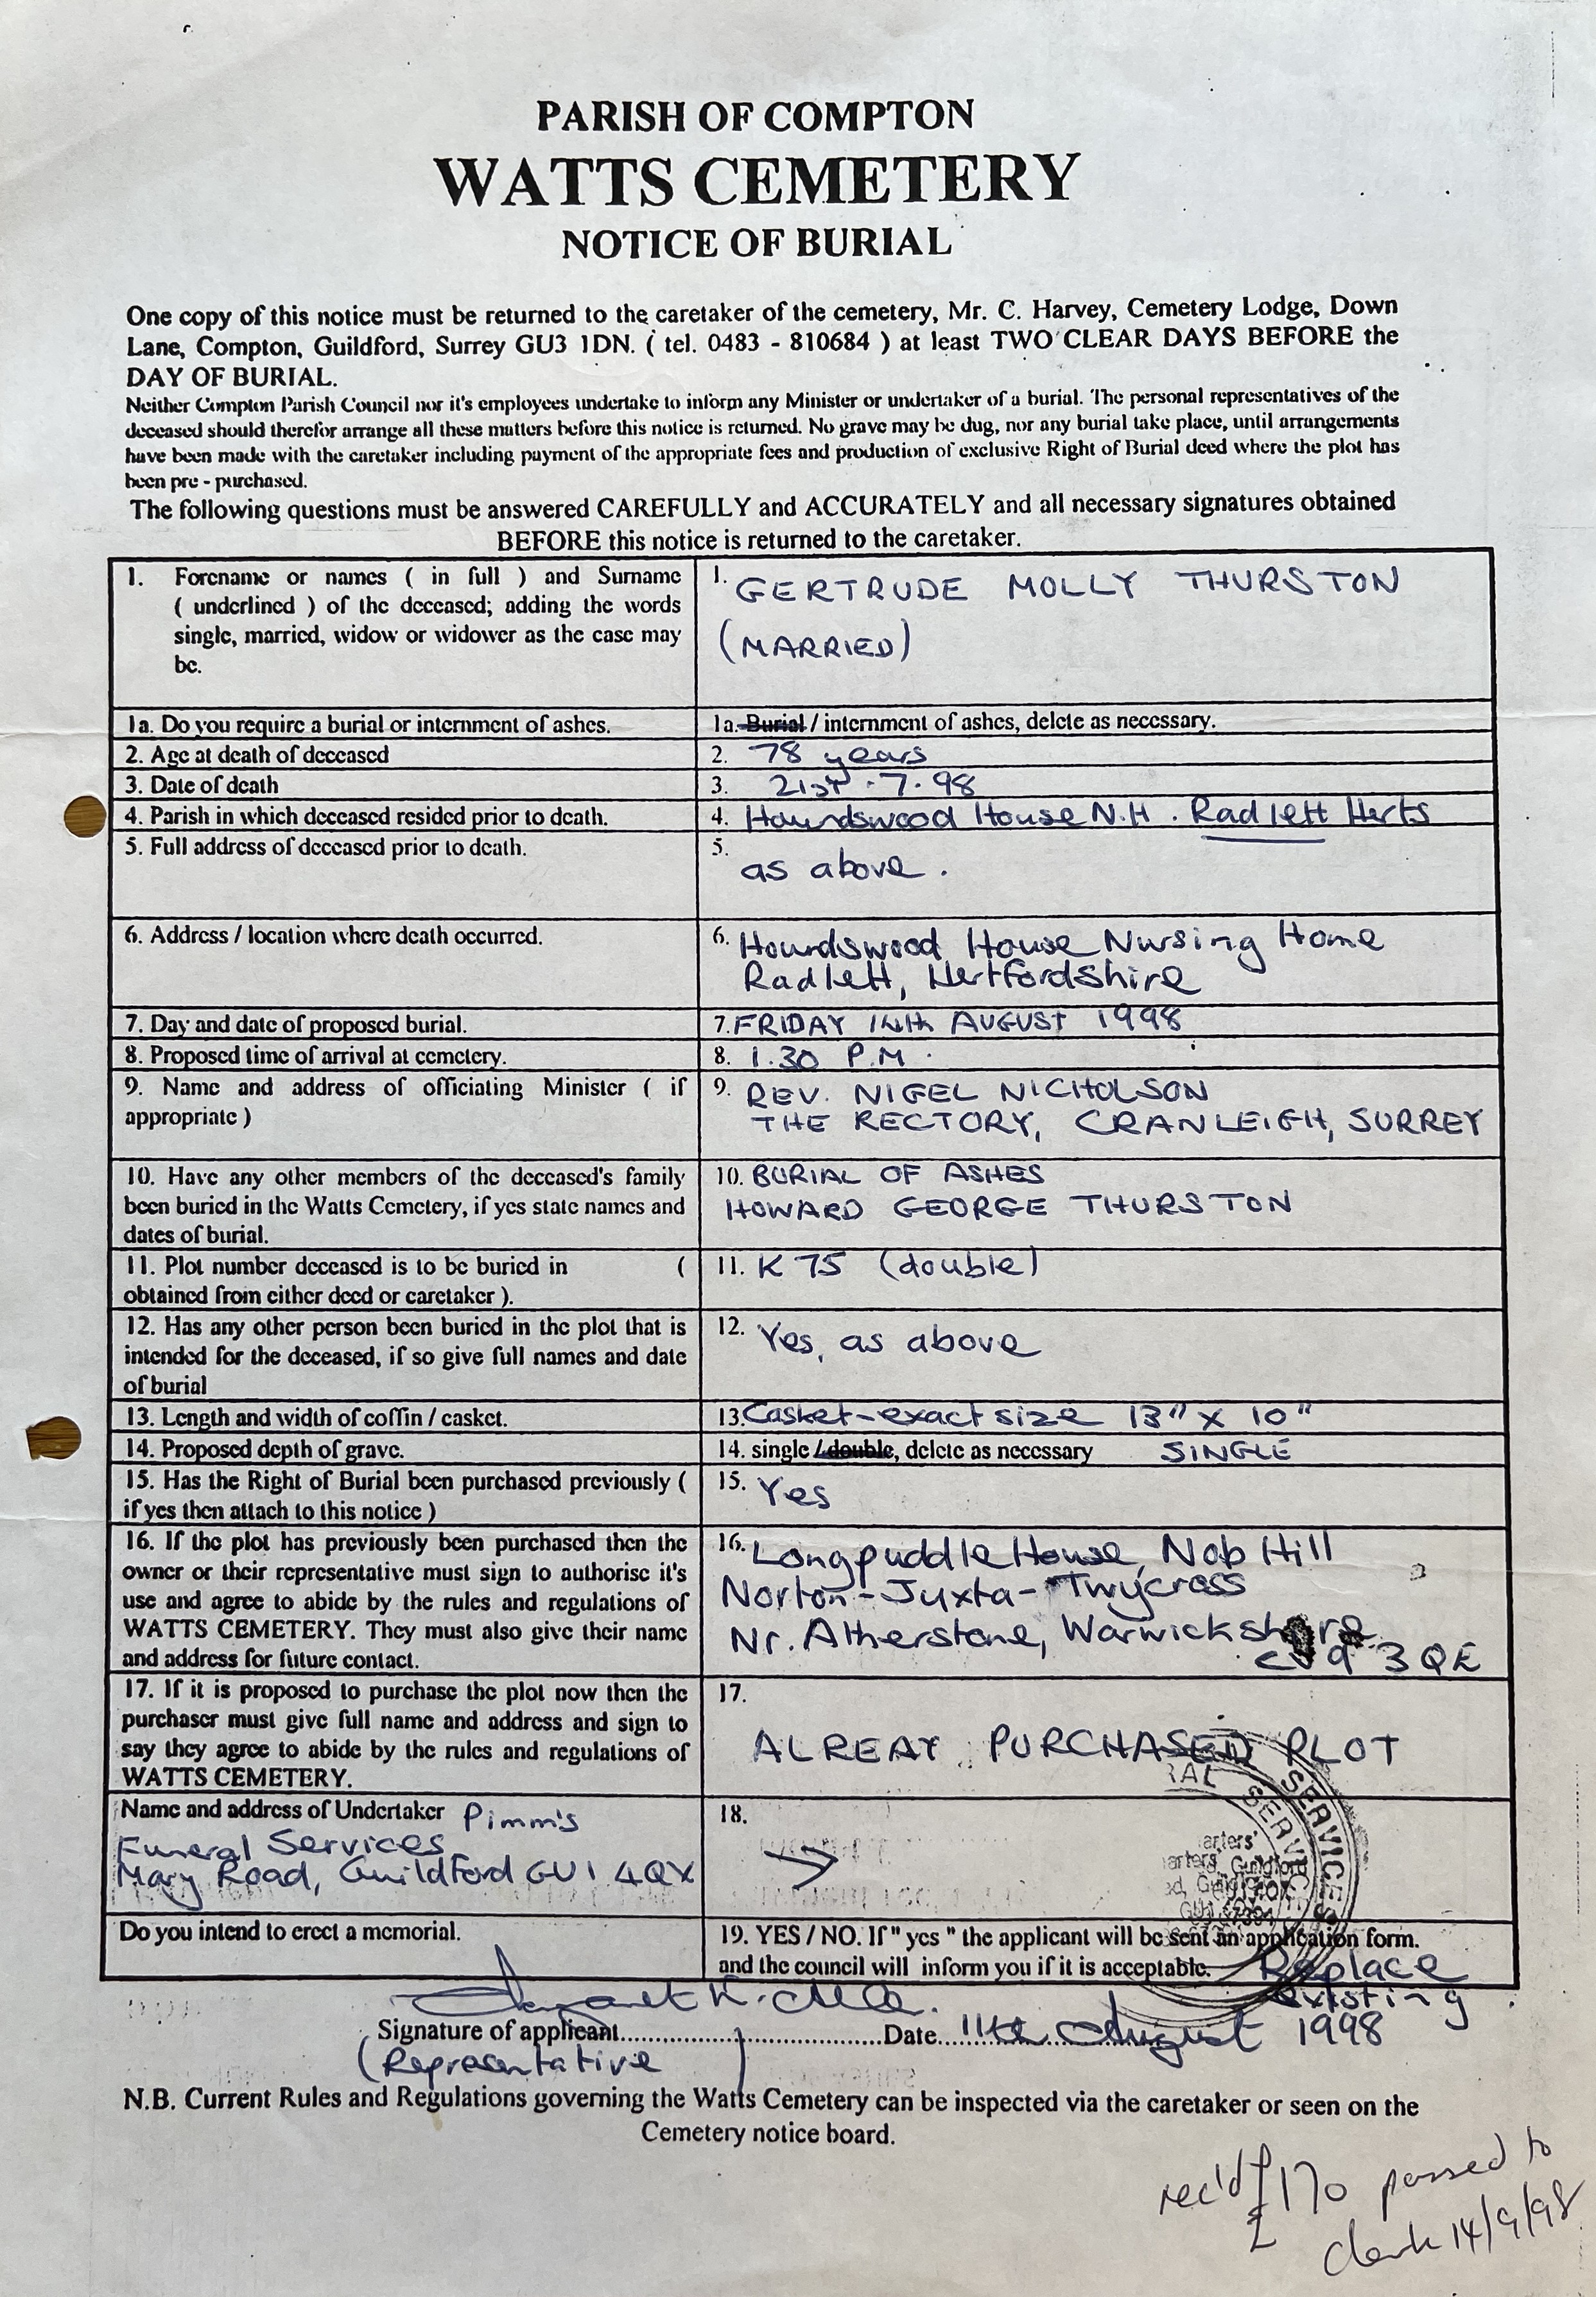 PARISH OF COMPTON
WATTS CEMETERY
NOTICE OF BURIAL
One copy of this notice must be returned to the caretaker of the cemetery, Mr. C. Harvey, Cemetery Lodge, Down
Lane, Compton, Guildford, Surrey GU3 1DN. ( tel. 0483 - 810684 ) at least TWO CLEAR DAYS BEFORE the
DAY OF BURIAL.
Neither Compton Parish Council nor it's employees undertake to inform any Minister or undertaker of a burial. The personal representatives of the
deceased should therefor arrange all these matters before this notice is returned. No grave may be dug, nor any burial take place, until arrangements
have been made with the caretaker including payment of the appropriate fees and production of exclusive Right of Burial deed where the plot has
been pre - purchased.
The following questions must be answered CAREFULLY and ACCURATELY and all necessary signatures obtained
BEFORE this notice is returned to the caretaker.
1. Forename or names ( in full ) and Surname
( underlined ) of the deceased; adding the words
single, married, widow or widower as the case may
be.
1. GERTRUDE MOLLY THURSTON
(MARRIED)
1a. Do you require a burial or internment of ashes.
1a. Burial / internment of ashes, delete as necessary.
2. Age at death of deceased
2. 78 years
3. Date of death
3. 21st . 7 . 98
4. Parish in which deceased resided prior to death.
4. Houndswood House N.H . Radlett Herts
5. Full address of deceased prior to death.
5. as above .
6. Address / location where death occurred.
6. Houndswood House Nursing Home
Radlett, Hertfordshire
7. Day and date of proposed burial.
7. FRIDAY 14th AUGUST 1998
8. Proposed time of arrival at cemetery.
8. 1.30 P.M.
9. Name and address of officiating Minister ( if
appropriate )
9. REV. NIGEL NICHOLSON
THE RECTORY, CRANLEIGH, SURREY
10. Have any other members of the deceased's family
been buried in the Watts Cemetery, if yes state names and
dates of burial.
10. BURIAL OF ASHES
HOWARD GEORGE THURSTON
11. Plot number deceased is to be buried in (
obtained from either deed or caretaker ).
11. K 75 (double)
12. Has any other person been buried in the plot that is
intended for the deceased, if so give full names and date
of burial
12. Yes, as above
13. Length and width of coffin / casket.
13. Casket-exact size 13" x 10"
14. Proposed depth of grave.
14. single / double, delete as necessary SINGLE
15. Has the Right of Burial been purchased previously (
if yes then attach to this notice )
15. Yes
16. If the plot has previously been purchased then the
owner or their representative must sign to authorise it's
use and agree to abide by the rules and regulations of
WATTS CEMETERY. They must also give their name
and address for future contact.
16. Longpuddle House, Nob Hill
Norton-Juxta-Twycross
Nr. Atherstone, Warwickshire
CV9 3QE
17. If it is proposed to purchase the plot now then the
purchaser must give full name and address and sign to
say they agree to abide by the rules and regulations of
WATTS CEMETERY.
17.
ALREAY PURCHASED PLOT
Name and address of Undertaker Pimm's
Funeral Services
Mary Road, Guildford GU1 4QX
18.
RAL SERVICES
SERVICES
Do you intend to erect a memorial.
19. YES / NO. If " yes " the applicant will be sent an application form.
and the council will inform you if it is acceptable. Replace
existing
Signature of applicant..............................................Date 11th August 1998
(Representative )
N.B. Current Rules and Regulations governing the Watts Cemetery can be inspected via the caretaker or seen on the
Cemetery notice board.
rec'd £170 passed to
clerk 14/9/98